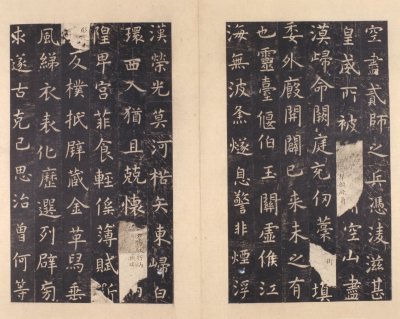 空盡貳師之兵憑淩滋甚
皇威所被空山盡
漠歸命闕庭充仞藁街填
委外廄開闢已來未之有
也靈臺偃伯玉關虛候江
海無波烽燧息警非煙浮
漢榮光莫河楛矢東歸白
環西入猶且兢懷
隍卑宮菲食輕徭薄賦斫
反樸抵璧藏金革舄垂
風綈衣表化歷選列辟旁
求遂古克己思治曾何等